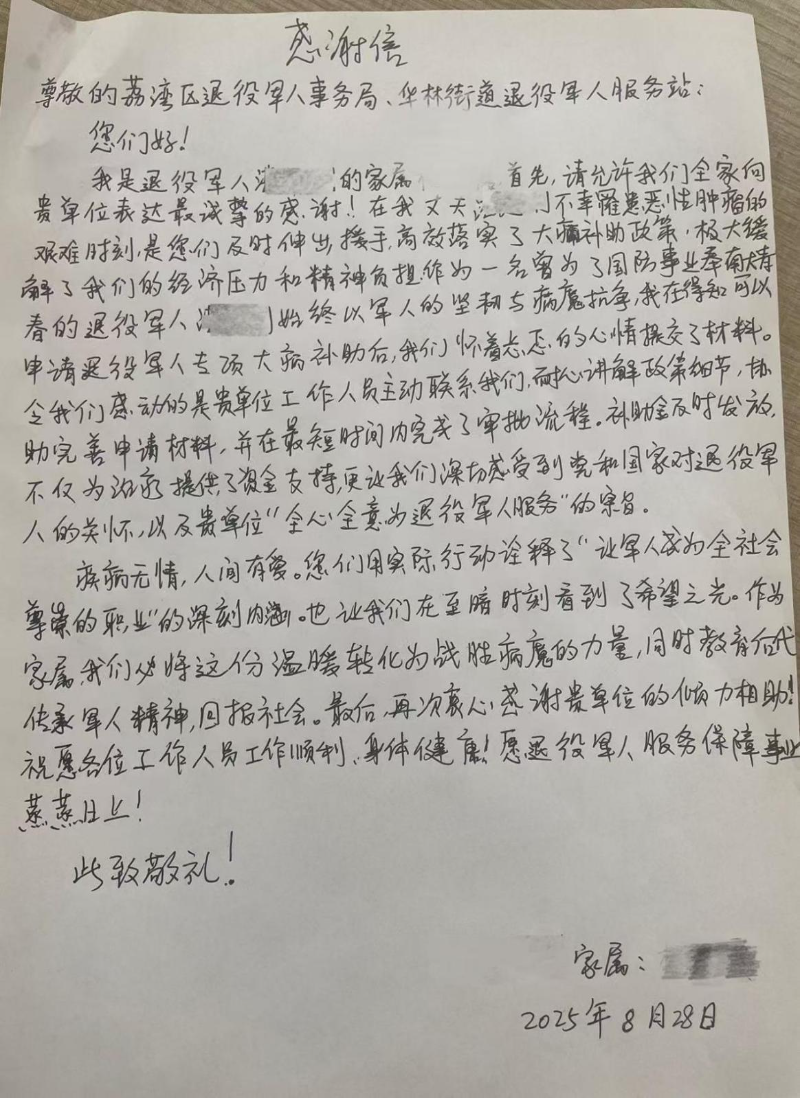 感谢信
尊敬的荔湾区退役军人事务局、华林街道退役军人服务站：
您们好！
我是退役军人的家属 首先，请允许我们全家向
贵单位表达最诚挚的感谢！在我丈夫不幸罹患恶性肿瘤的
艰难时刻，是您们及时伸出援手，高效落实了大病补助政策，极大缓
解了我们的经济压力和精神负担。作为一名曾为了国防事业奉献青
春的退役军人始终以军人的坚韧与病魔抗争，我在得知可以
申请退役军人专项大病补助后，我们怀着忐忑的心情提交了材料。
令我们感动的是贵单位工作人员主动联系我们，耐心讲解政策细节，协
助完善申请材料，并在最短时间内完成了审批流程。补助金及时发放，
不仅为治疗提供了资金支持，更让我们深切感受到党和国家对退役军
人的关怀，以及贵单位“全心全意为退役军人服务”的宗旨。
疾病无情，人间有爱。您们用实际行动诠释了“让军人成为全社会
尊崇的职业”的深刻内涵。也让我们在至暗时刻看到了希望之光。作为
家属，我们必将这份温暖转化为战胜病魔的力量，同时教育后代
传承军人精神，回报社会。最后，再次衷心感谢贵单位的倾力相助！
祝愿各位工作人员工作顺利、身体健康！愿退役军人服务保障事业
蒸蒸日上！
此致敬礼！
家属：
2025年8月28日